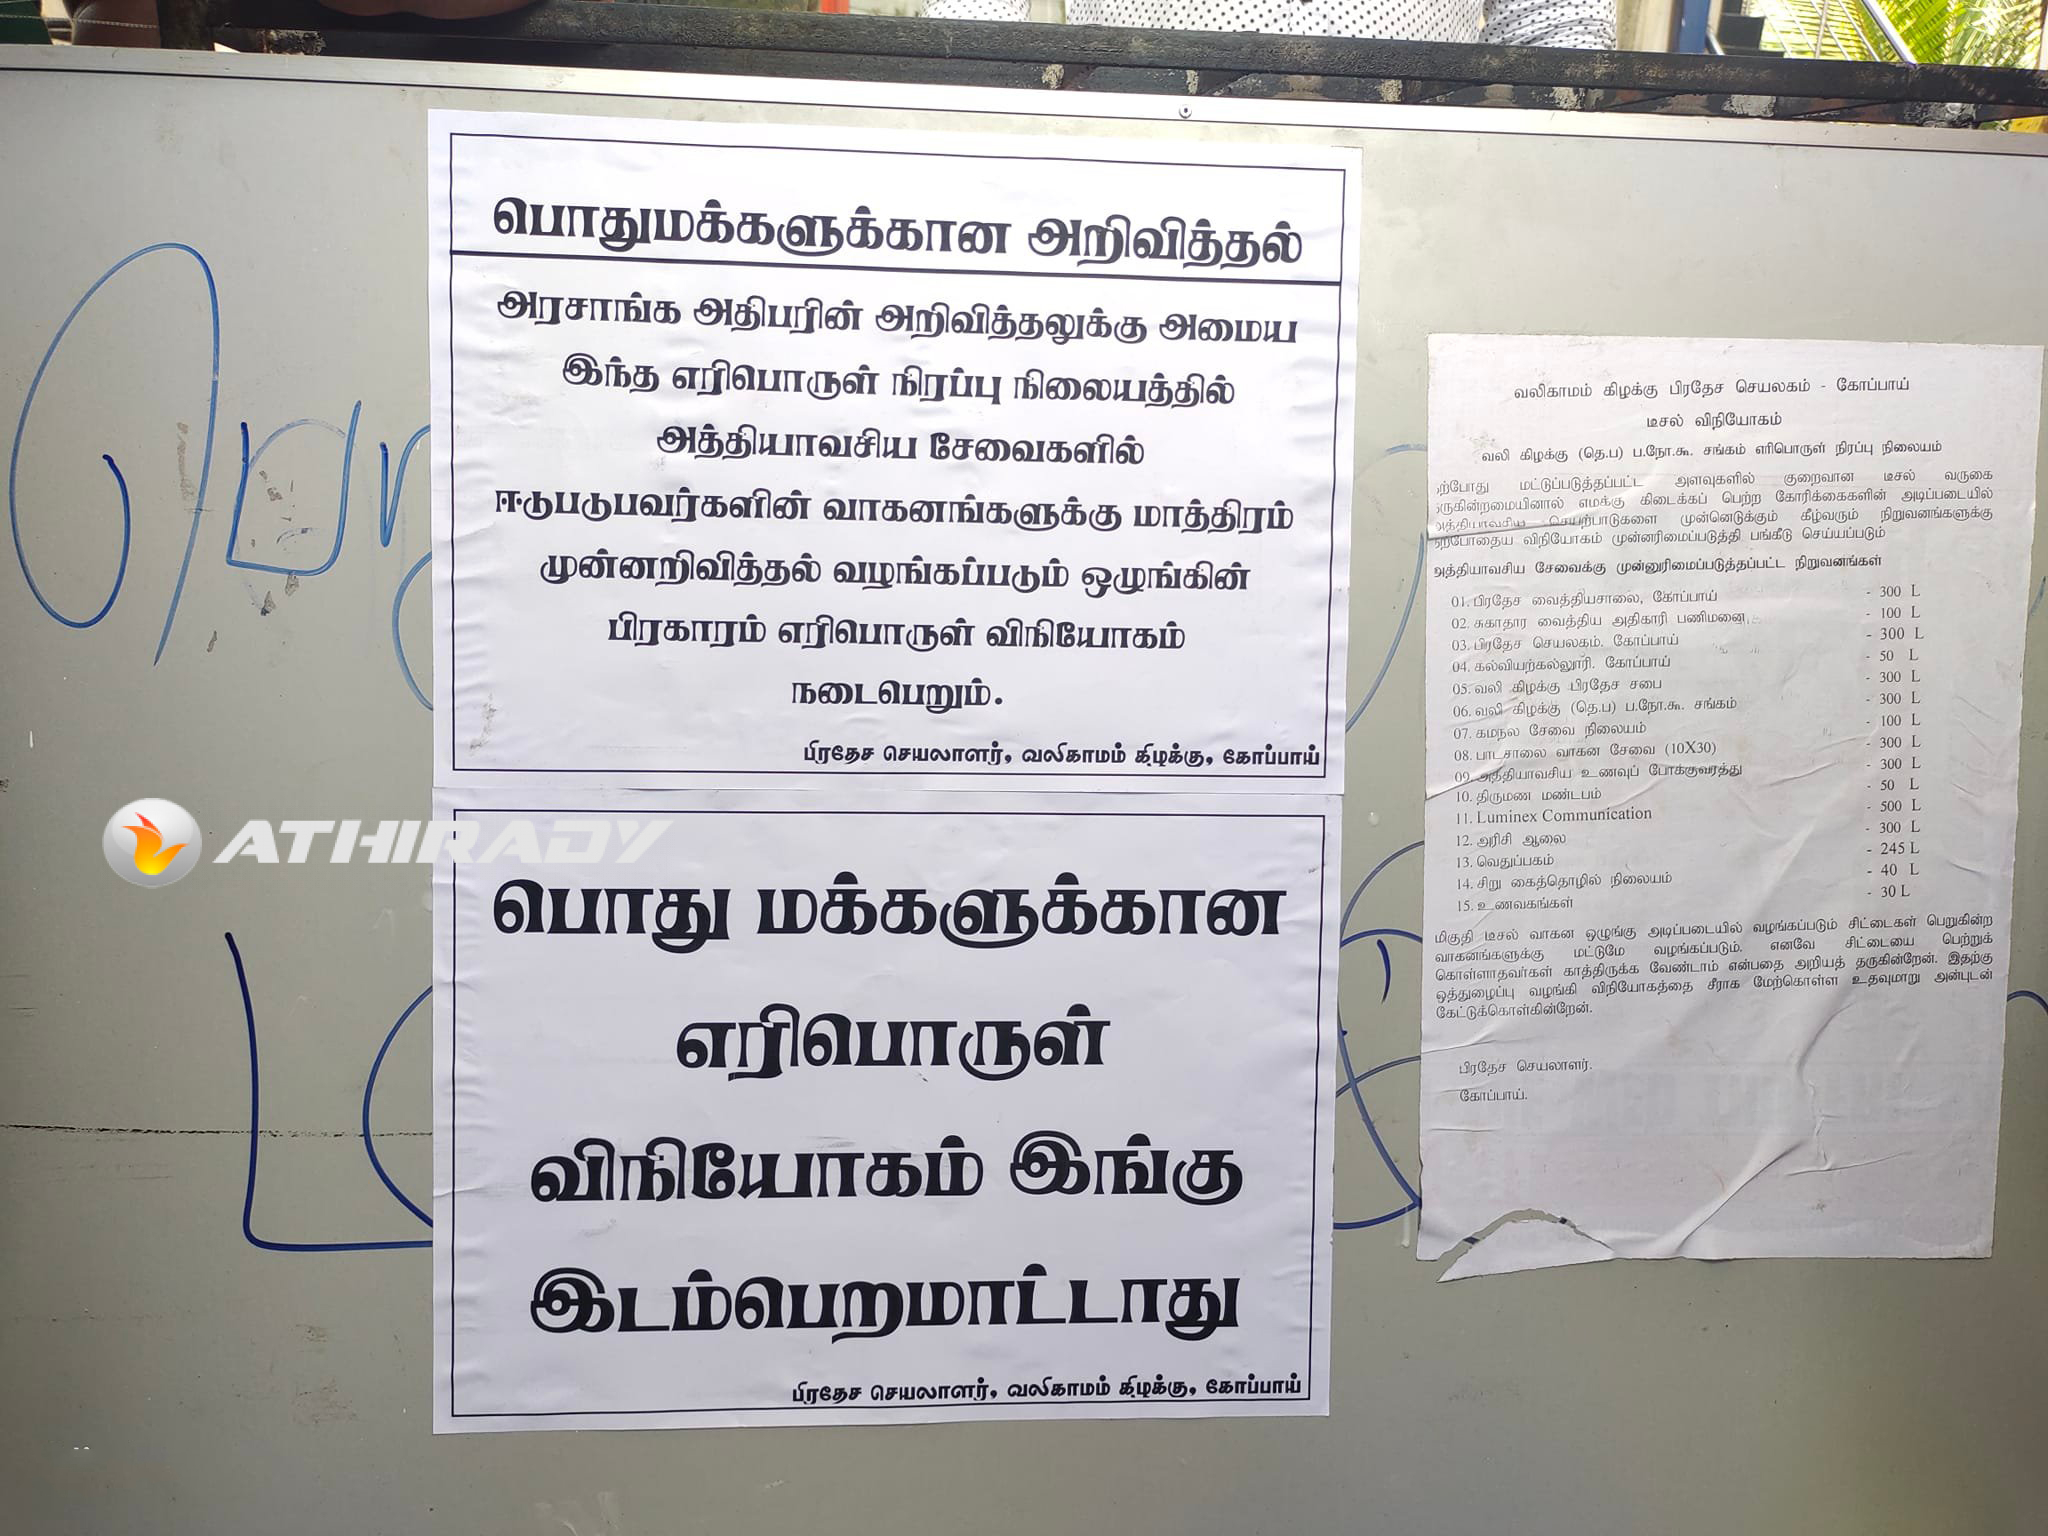 பொதுமக்களுக்கான அறிவித்தல்
அரசாங்க அதிபரின் அறிவித்தலுக்கு அமைய
இந்த எரிபொருள் நிரப்பு நிலையத்தில்
அத்தியாவசிய சேவைகளில்
ஈடுபடுபவர்களின் வாகனங்களுக்கு மாத்திரம்
முன்னறிவித்தல் வழங்கப்படும் ஒழுங்கின்
பிரகாரம் எரிபொருள் விநியோகம்
நடைபெறும்.
பிரதேச செயலாளர், வலிகாமம் கிழக்கு, கோப்பாய்
ATHIRADY
பொது மக்களுக்கான
எரிபொருள்
விநியோகம் இங்கு
இடம்பெறமாட்டாது
பிரதேச செயலாளர், வலிகாமம் கிழக்கு, கோப்பாய்
வலிகாமம் கிழக்கு பிரதேச செயலகம் - கோப்பாய்
டீசல் விநியோகம்
வலி கிழக்கு (தெ.ப) ப.நோ.கூ. சங்கம் எரிபொருள் நிரப்பு நிலையம்
மட்டுப்படுத்தப்பட்ட அளவுகளில் குறைவான டீசல் வருகை
எமக்கு கிடைக்கப் பெற்ற கோரிக்கைகளின் அடிப்படையில்
செயற்பாடுகளை முன்னெடுக்கும் கீழ்வரும் நிறுவனங்களுக்கு
விநியோகம் முன்னுரிமைப்படுத்தி பங்கீடு செய்யப்படும்
அத்தியாவசிய சேவைக்கு முன்னுரிமைப்படுத்தப்பட்ட நிறுவனங்கள்
01. பிரதேச வைத்தியசாலை, கோப்பாய் - 300 L
02. சுகாதார வைத்திய அதிகாரி பணிமனை - 100 L
03. பிரதேச செயலகம். கோப்பாய் - 300 L
04. கல்வியற்கல்லூரி. கோப்பாய் - 50 L
05. வலி கிழக்கு பிரதேச சபை - 300 L
06. வலி கிழக்கு (தெ.ப) ப.நோ.கூ. சங்கம் - 300 L
07. கமநல சேவை நிலையம் - 100 L
08. பாடசாலை வாகன சேவை (10X30) - 300 L
09. அத்தியாவசிய உணவுப் போக்குவரத்து - 300 L
10. திருமண மண்டபம் - 50 L
11. Luminex Communication - 500 L
12. அரிசி ஆலை - 300 L
13. வெதுப்பகம் - 245 L
14. சிறு கைத்தொழில் நிலையம் - 40 L
15. உணவகங்கள் - 30 L
மிகுதி டீசல் வாகன ஒழுங்கு அடிப்படையில் வழங்கப்படும் சிட்டைகள் பெறுகின்ற
வாகனங்களுக்கு மட்டுமே வழங்கப்படும். எனவே சிட்டையை பெற்றுக்
கொள்ளாதவர்கள் காத்திருக்க வேண்டாம் என்பதை அறியத் தருகின்றேன். இதற்கு
ஒத்துழைப்பு வழங்கி விநியோகத்தை சீராக மேற்கொள்ள உதவுமாறு அன்புடன்
கேட்டுக்கொள்கின்றேன்.
பிரதேச செயலாளர்.
கோப்பாய்.